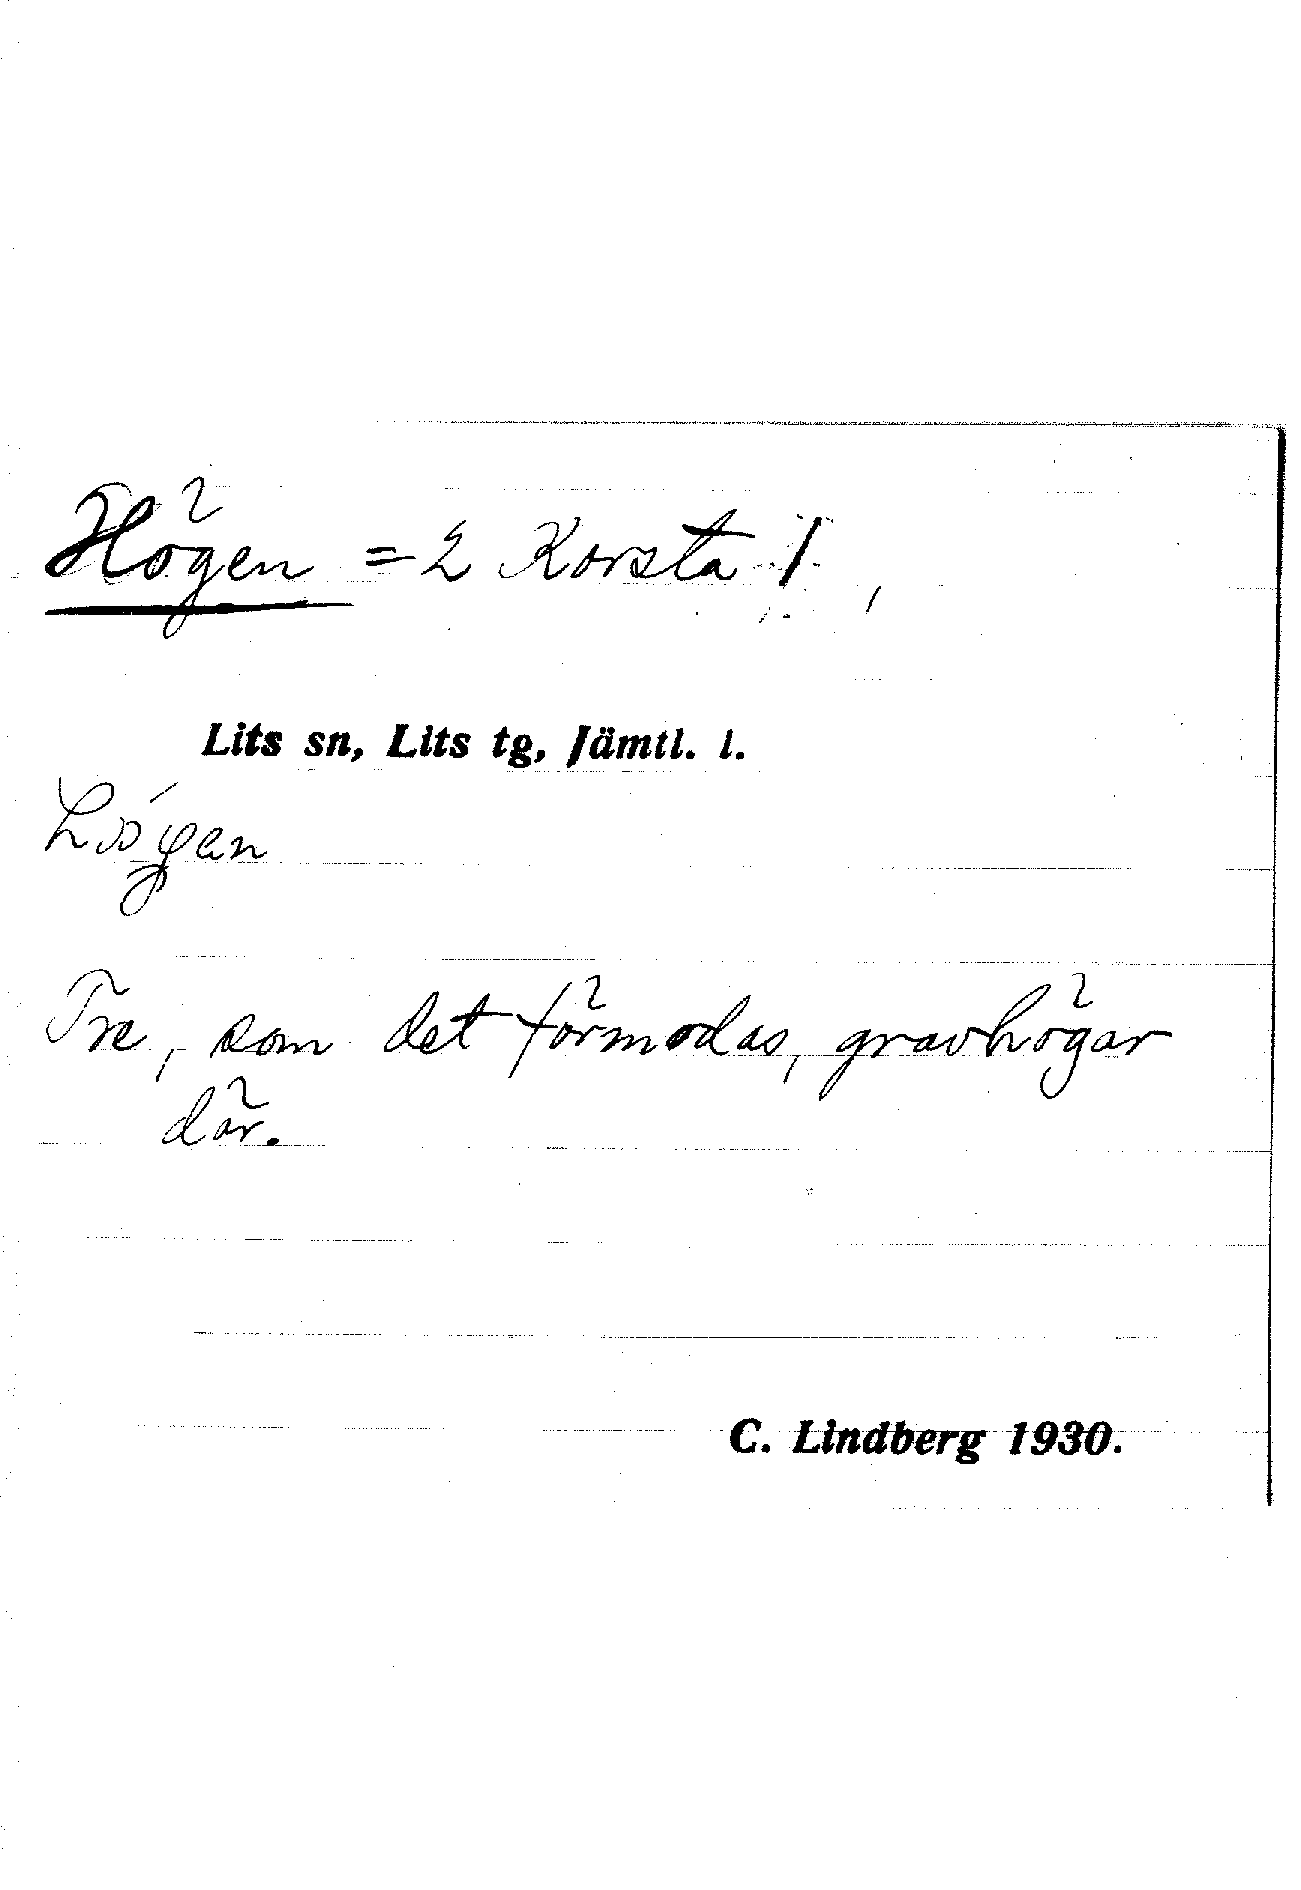 Högen = 2 Korsta 1
Lits sn, Lits tg, Jämtl. l.
Tre, som det förmodas, gravhögar
där.
C. Lindberg 1930.